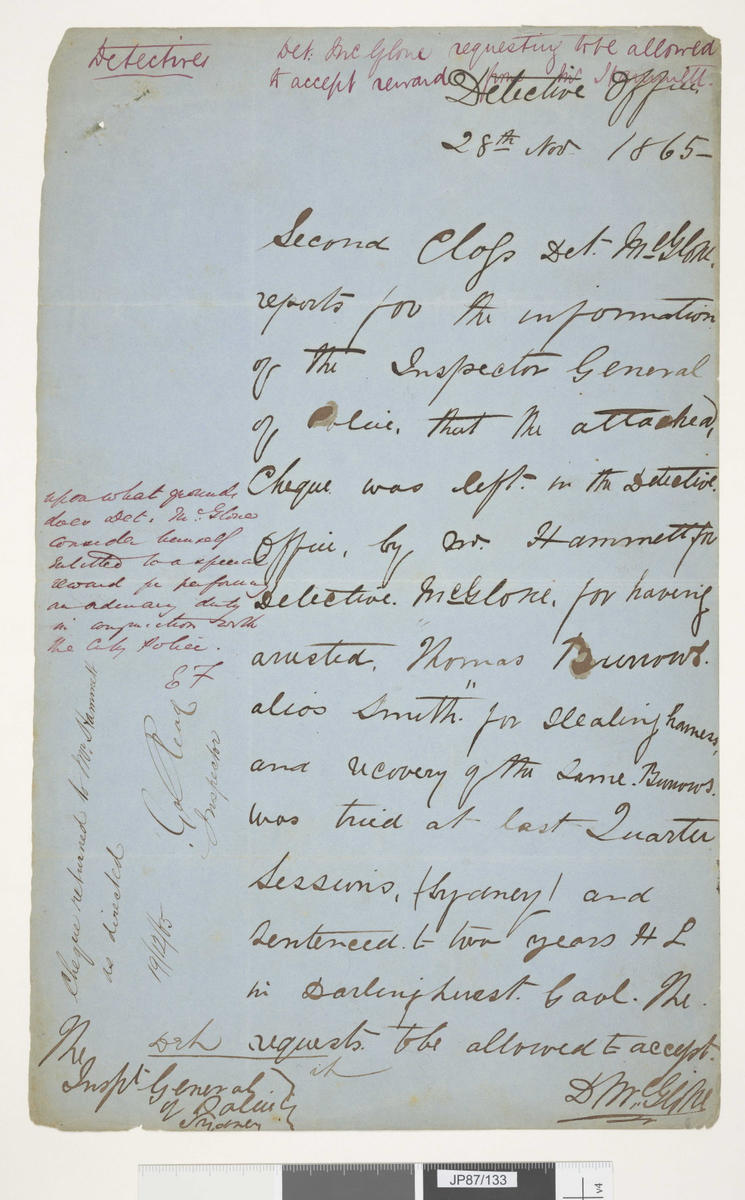 Detectives
Det. McGlone requesting to be allowed
to accept reward from Mr Hammett.
Detective Office,
28th Nov. 1865-
Second Class Det. McGlone.
reports for the information
of the Inspector General
of Police, that the attached,
Cheque was left in the Detective
Office, by Mr. Hammett for
Detective. McGlone, for having
arrested, "Thomas Burrows.
alias Smith." for stealing harness,
and recovery of the same. Burrows.
was tried at last Quarter
Sessions, (Sydney) and
Sentenced to two years H L
in Darlinghurst. Gaol. The.
Det. requests to be allowed to accept.
it
D McGlone
The
Inspt General
of Police
Sydney
upon what grounds
does Det. McGlone
consider himself
entitled to a special
reward for performing
an ordinary duty
in conjunction with
the City Police.
E F
Cheque returned to Mr. Hammett
as directed
Geo Read
Inspector
19/12/65
JP87/133
v4